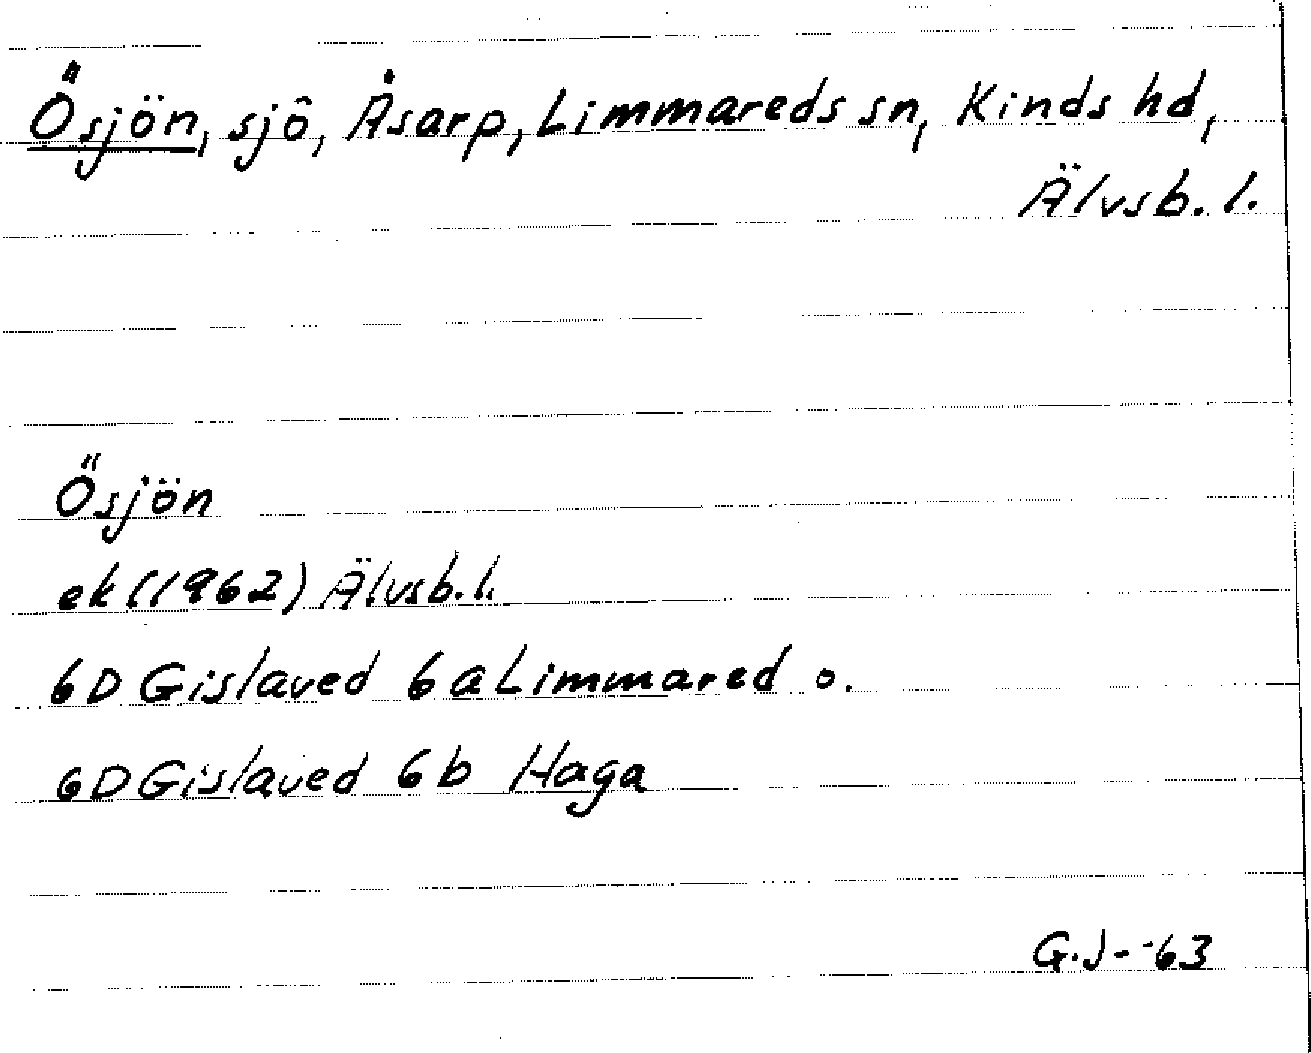 Ösjön, sjö, Åsarp, Limmareds sn, Kinds hd,
Älvsb. l.
Ösjön
ek (1962) Älvsb. l.
6D Gislaved 6a Limmared o.
6D Gislaved 6b Haga
G.J- -63